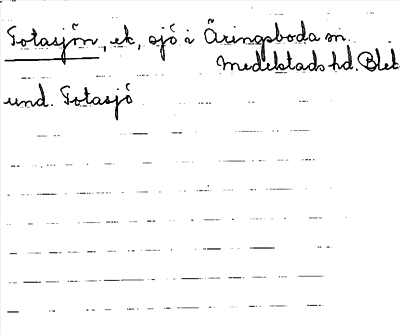 Totasjön, ek, sjö i Äringsboda sn
Medelstads hd. Blek
und. Totasjö